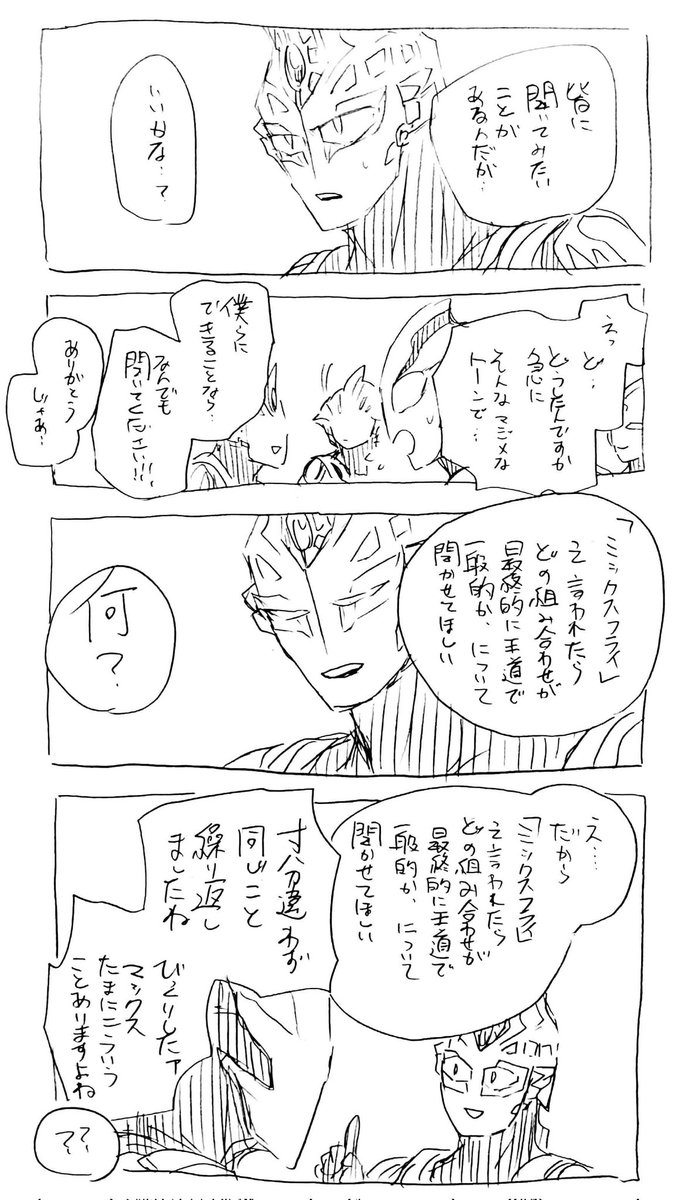 皆に
聞いてみたい
ことが
あるんだが…
いいかな…?
えっ
ど…
どうしたんですか
急に
そんなマジメな
トーンで…
僕らに
できることなら…
なんでも
聞いてください!!
ありがとう
じゃあ…
「ミックスフライ」
と言われたら
どの組み合わせが
最終的に王道で
一般的か、について
聞かせてほしい
何?
え…
だから
「ミックスフライ」
と言われたら
どの組み合わせが
最終的に王道で
一般的か、について
聞かせてほしい
寸分違わず
同じこと
繰り返し
ましたね
びっくりしたァ
マックス
たまにこういう
ことありますよね
??